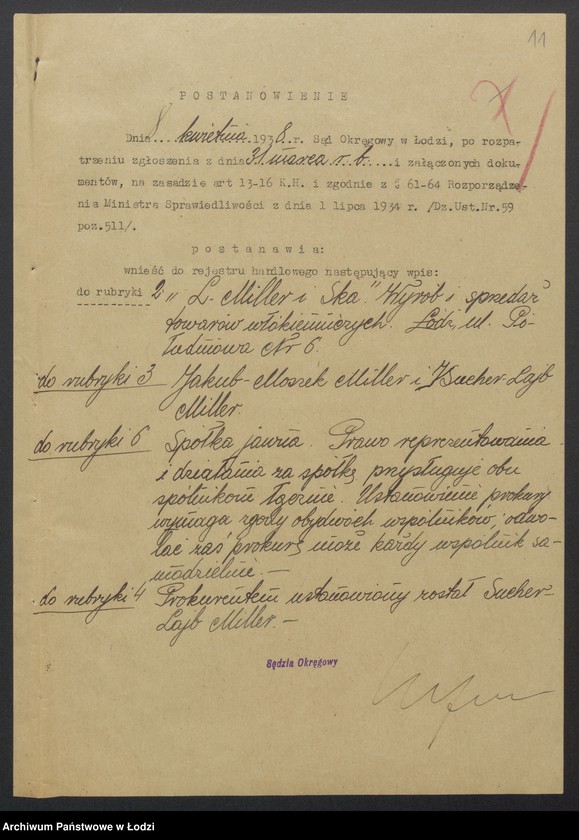 11
POSTANOWIENIE
Dnia 8 kwietnia 1938.r. Sąd Okręgowy w Łodzi, po rozpa-
trzeniu zgłoszenia z dnia 31 marca r. b.....i załączonych doku-
mentów, na zasadzie art 13-16 K.H. i zgodnie z § 61-64 Rozporządze-
nia Ministra Sprawiedliwości z dnia 1 lipca 1934 r. /Dz.Ust.Nr.59
poz.511/.
postanawia:
wnieść do rejestru handlowego następujący wpis:
do rubryki 2 „L. Miller i Ska." Wyrób i sprzedaż
towarów włókienniczych. Łódź, ul. Po-
łudniowa Nr 6.
do rubryki 3 Jakub-Moszek Miller i Sucher Lajb
Miller.
do rubryki 6 Spółka jawna. Prawo reprezentowania
i działania za spółkę przysługuje obu
spólnikom łącznie. Ustanowienie prokury
wymaga zgody obydwóch wspólników, odwo-
łać zaś prokurę może każdy wspólnik sa-
modzielnie.—
do rubryki 4 Prokurentem ustanowiony został Sucher-
Lajb Miller.—
Sędzia Okręgowy
Archiwum Państwowe w Łodzi